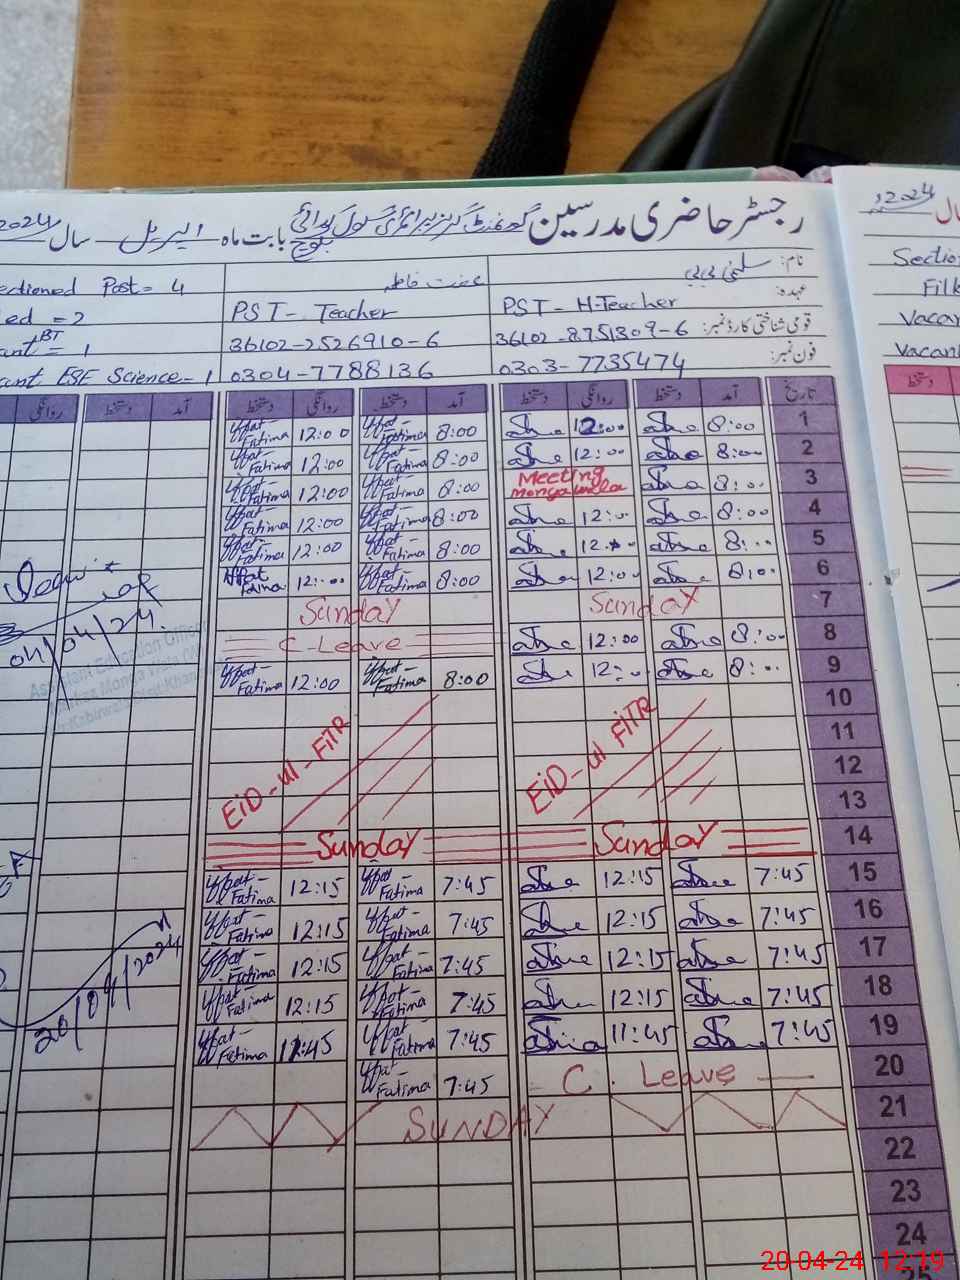 رجسٹر حاضری مدرسین گورنمنٹ گرلز پرائمری سکول بابت ماہ اپریل سال 2024
نام: سلمیٰ بی بی
عفت فاطمہ
Post= 4
عہدہ:
PST- H-Teacher
PST- Teacher
قومی شناختی کارڈ نمبر:
36102-8751309-6
36102-2526910-6
فون نمبر:
0303-7735474
0304-7788136
ESE Science-1
تاریخ آمد دستخط روانگی دستخط آمد دستخط روانگی دستخط آمد دستخط روانگی
1 8:00 12:00 8:00 Iffat-Fatima 12:00 Iffat-Fatima
2 8:00 12:00 8:00 Iffat-Fatima 12:00 Iffat-Fatima
3 8:00 Meeting 8:00 Iffat-Fatima 12:00 Iffat-Fatima
4 8:00 12:00 8:00 Iffat-Fatima 12:00 Iffat-Fatima
5 8:00 12:00 8:00 Iffat-Fatima 12:00 Iffat-Fatima
6 8:00 12:00 8:00 Iffat-Fatima 12:00 Iffat Fatima
7 Sunday Sunday
8 8:00 12:00 C-Leave
9 8:00 12:00 8:00 Iffat-Fatima 12:00 Iffat-Fatima
10
11
12
13
EID-ul-FITR EID-ul FITR
14 Sunday Sunday
15 7:45 12:15 7:45 Iffat-Fatima 12:15 Iffat-Fatima
16 7:45 12:15 7:45 Iffat-Fatima 12:15 Iffat-Fatima
17 7:45 12:15 7:45 Iffat-Fatima 12:15 Iffat-Fatima
18 7:45 12:15 7:45 Iffat-Fatima 12:15 Iffat-Fatima
19 7:45 11:45 7:45 Iffat-Fatima 11:45 Iffat-Fatima
20 C. Leave 7:45 Iffat-Fatima
21 SUNDAY
22
23
24
04/04/24
Assistant Education Officer
20/04/2024
2024
Sectio
Vacan
Vacan
دستخط
20-04-24 12:19